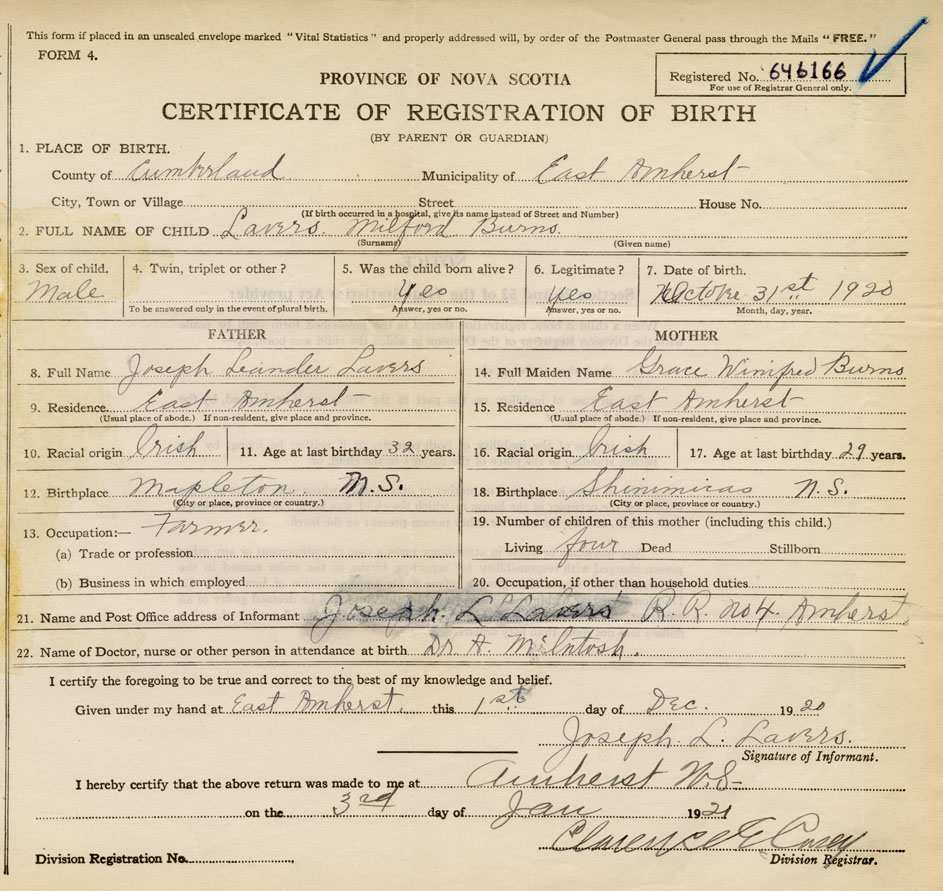 This form if placed in an unsealed envelope marked "Vital Statistics" and properly addressed will, by order of the Postmaster General pass through the Mails "FREE."
FORM 4.
PROVINCE OF NOVA SCOTIA
Registered No. 646166
For use of Registrar General only.
CERTIFICATE OF REGISTRATION OF BIRTH
(BY PARENT OR GUARDIAN)
1. PLACE OF BIRTH.
County of Cumberland Municipality of East Amherst
City, Town or Village Street House No.
(If birth occurred in a hospital, give its name instead of Street and Number)
2. FULL NAME OF CHILD Lavers. Milford Burns.
(Surname) (Given name)
3. Sex of child. 4. Twin, triplet or other? 5. Was the child born alive? 6. Legitimate? 7. Date of birth.
Male Yes Yes October 31st 1920
To be answered only in the event of plural birth. Answer, yes or no. Answer, yes or no. Month, day, year.
FATHER MOTHER
8. Full Name Joseph Leander Lavers 14. Full Maiden Name Grace Winifred Burns
9. Residence. East Amherst 15. Residence East Amherst
(Usual place of abode.) If non-resident, give place and province. (Usual place of abode.) If non-resident, give place and province.
10. Racial origin Irish 11. Age at last birthday 32 years. 16. Racial origin. Irish 17. Age at last birthday 29 years.
12. Birthplace Mapleton. N.S. 18. Birthplace Shinimicas N.S.
(City or place, province or country.) (City or place, province or country.)
13. Occupation:— Farmer. 19. Number of children of this mother (including this child.)
(a) Trade or profession Living four Dead Stillborn
(b) Business in which employed 20. Occupation, if other than household duties
21. Name and Post Office address of Informant Joseph. L. Lavers R.R. no 4. Amherst,
22. Name of Doctor, nurse or other person in attendance at birth Dr. A. McIntosh.
I certify the foregoing to be true and correct to the best of my knowledge and belief.
Given under my hand at East Amherst. this 1st day of Dec. 1920
Joseph. L. Lavers.
Signature of Informant.
I hereby certify that the above return was made to me at Amherst N.S.
on the 3rd day of Jan 1921
Clarence E Casey
Division Registration No. Division Registrar.